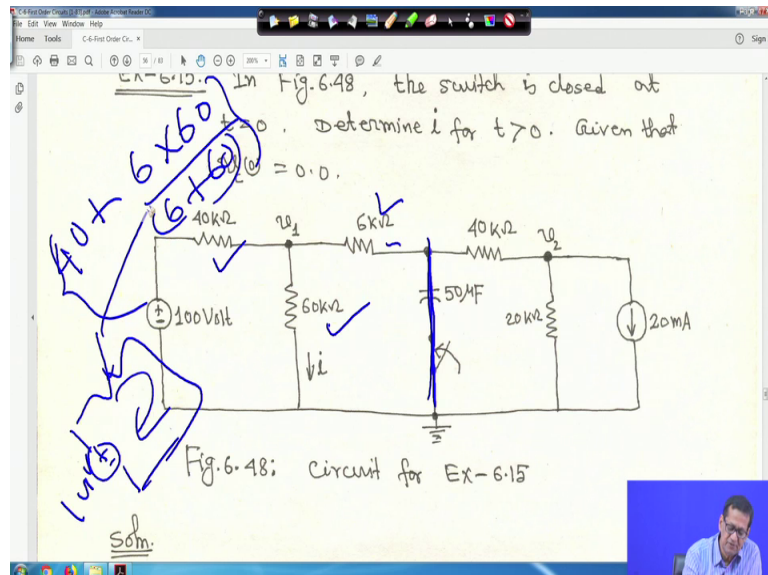 C-6-First Order Circuits [1-83].pdf - Adobe Acrobat Reader DC
File Edit View Window Help
Home Tools C-6-First Order Cir... × Sign
56 / 83 200%
Ex-6.15: In Fig.6.48, the switch is closed at
t=0. Determine i for t>0. Given that
= 0.0.
40+ 6×60
(6+60)
40KΩ
v1
6KΩ
40KΩ
v2
100Volt
60KΩ
50μF
20KΩ
20mA
i
Fig.6.48: Circuit for Ex-6.15
Soln.